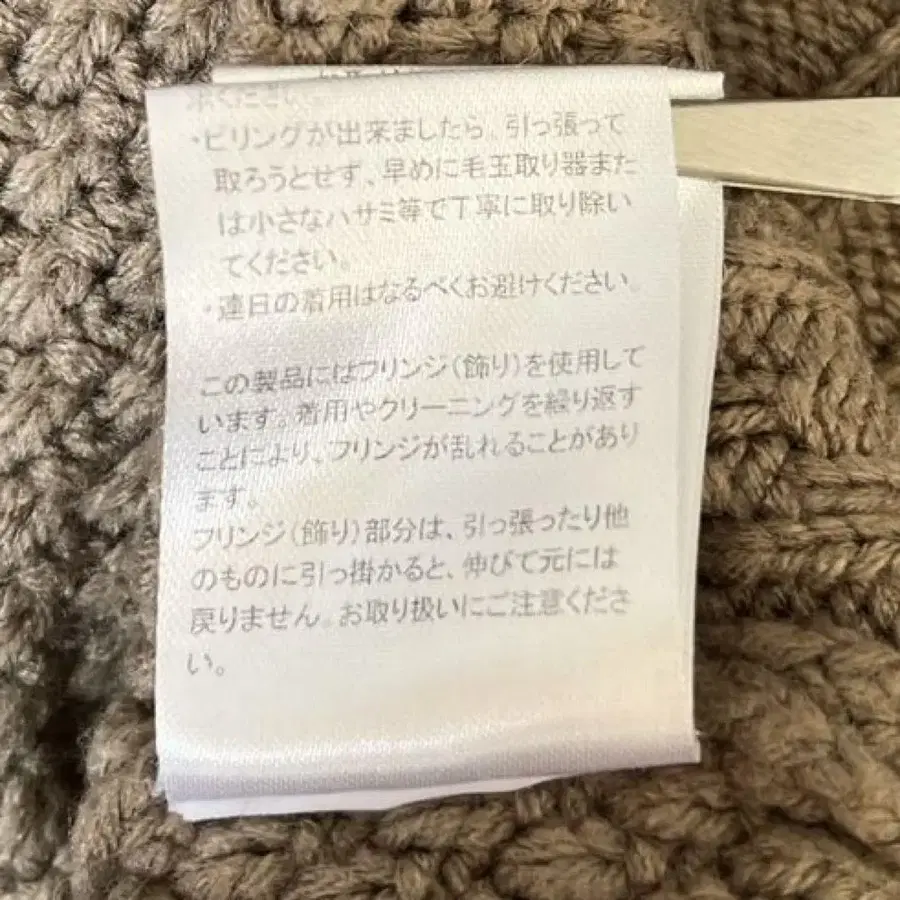 ください。
・ピリングが出来ましたら、引っ張って
取ろうとせず、早めに毛玉取り器また
は小さなハサミ等で丁寧に取り除い
てください。
・連日の着用はなるべくお避けください。
この製品にはフリンジ（飾り）を使用して
います。着用やクリーニングを繰り返す
ことにより、フリンジが乱れることがあり
ます。
フリンジ（飾り）部分は、引っ張ったり他
のものに引っ掛かると、伸びて元には
戻りません。お取り扱いにご注意くださ
い。